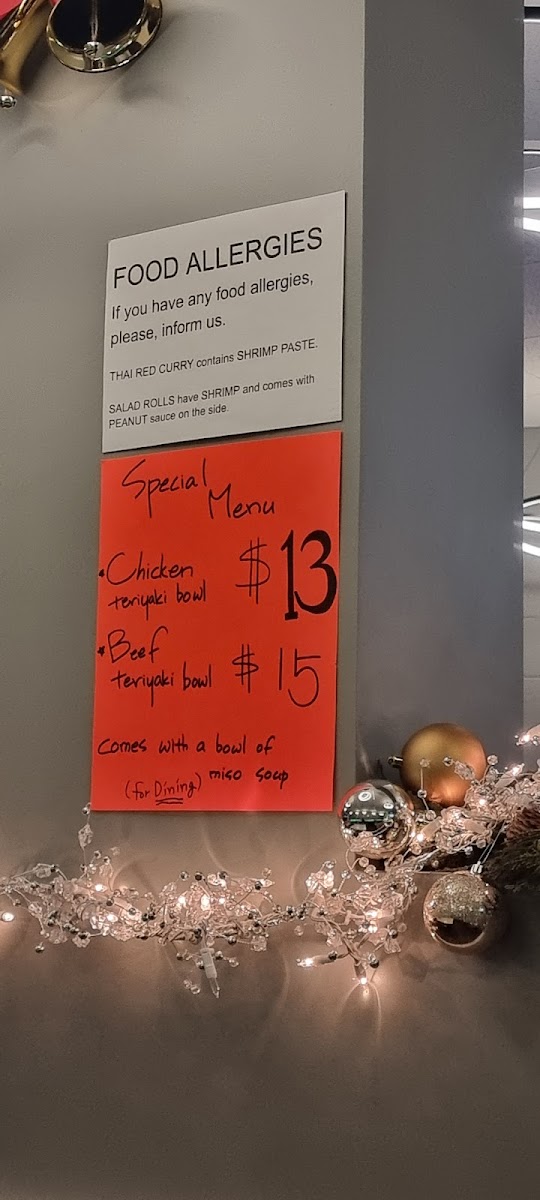 FOOD ALLERGIES
If you have any food allergies,
please, inform us.
THAI RED CURRY contains SHRIMP PASTE.
SALAD ROLLS have SHRIMP and comes with
PEANUT sauce on the side.
Special
Menu
*Chicken $13
teriyaki bowl
*Beef $15
teriyaki bowl
comes with a bowl of
(for Dining) miso soup